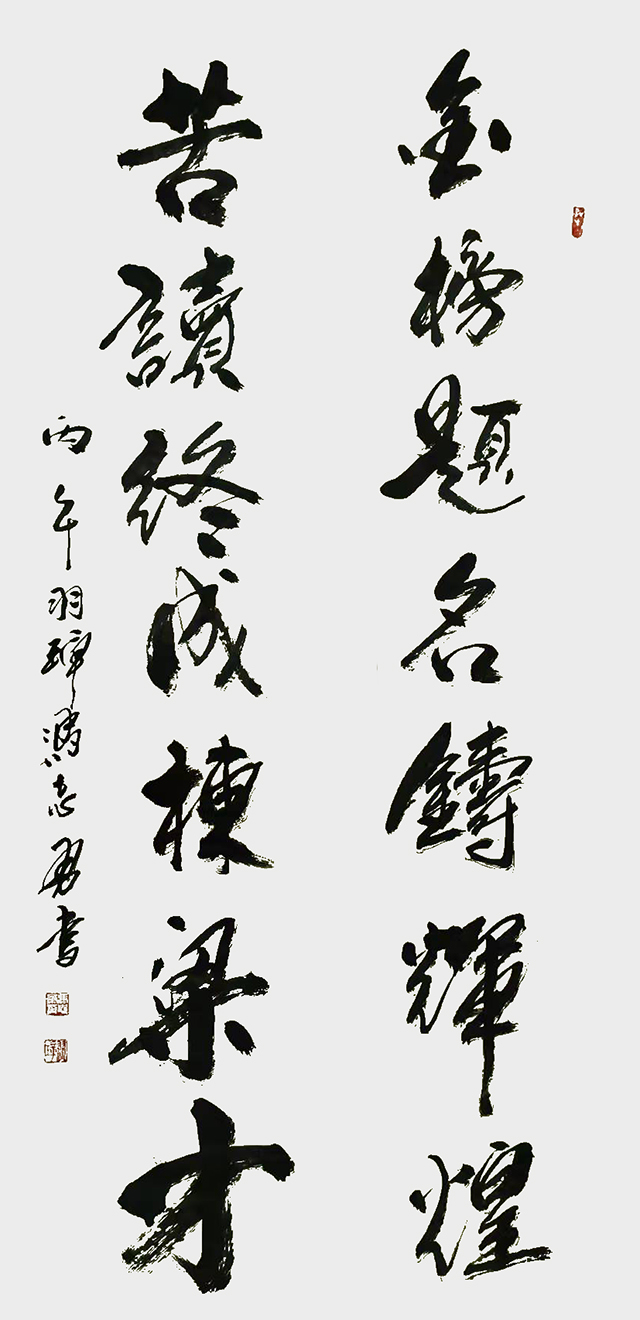 金榜題名鑄輝煌
苦讀終成棟梁才
丙午羽馮志勇書